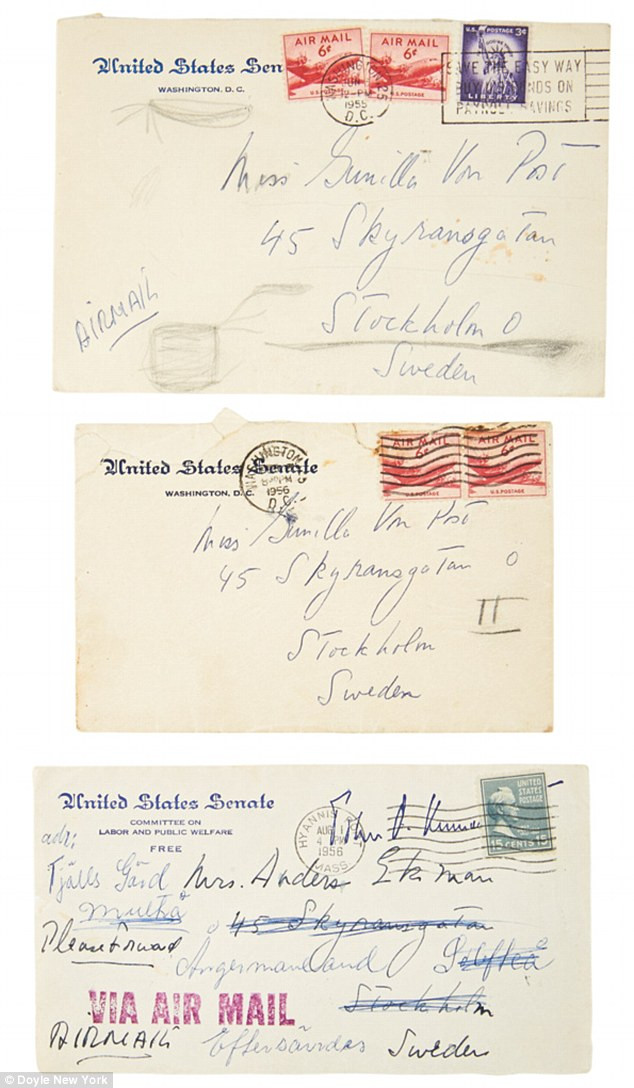 United States Sen
WASHINGTON, D. C.
AIR MAIL
6¢
U.S. POSTAGE
AIR MAIL
6¢
U.S. POSTAGE
U.S. POSTAGE 3¢
LIBERTY
WASHINGTON 25
12-PM
1955
D.C.
SAVE THE EASY WAY
BUY U.S. BONDS ON
PAYROLL SAVINGS
Miss Gunilla Von Post
45 Skyransgatan
Stockholm O
Sweden
AIRMAIL
United States Senate
WASHINGTON, D. C.
WASHINGTON
1956
D.C.
AIR MAIL
6¢
U.S. POSTAGE
AIR MAIL
6¢
U.S. POSTAGE
Miss Gunilla Von Post
45 Skyransgatan O
Stockholm
Sweden
II
United States Senate
COMMITTEE ON
LABOR AND PUBLIC WELFARE
FREE
HYANNIS PORT
AUG 1
4 PM
1956
MASS
UNITED
STATES
POSTAGE
15 CENTS 15
adr:
Tjälls Gård Mrs. Anders Ekman
Multrå 45 Skyransgatan
Please Forward
Ångermanland
Stockholm
VIA AIR MAIL
AIRMAIL Eftersändes Sweden
© Doyle New York